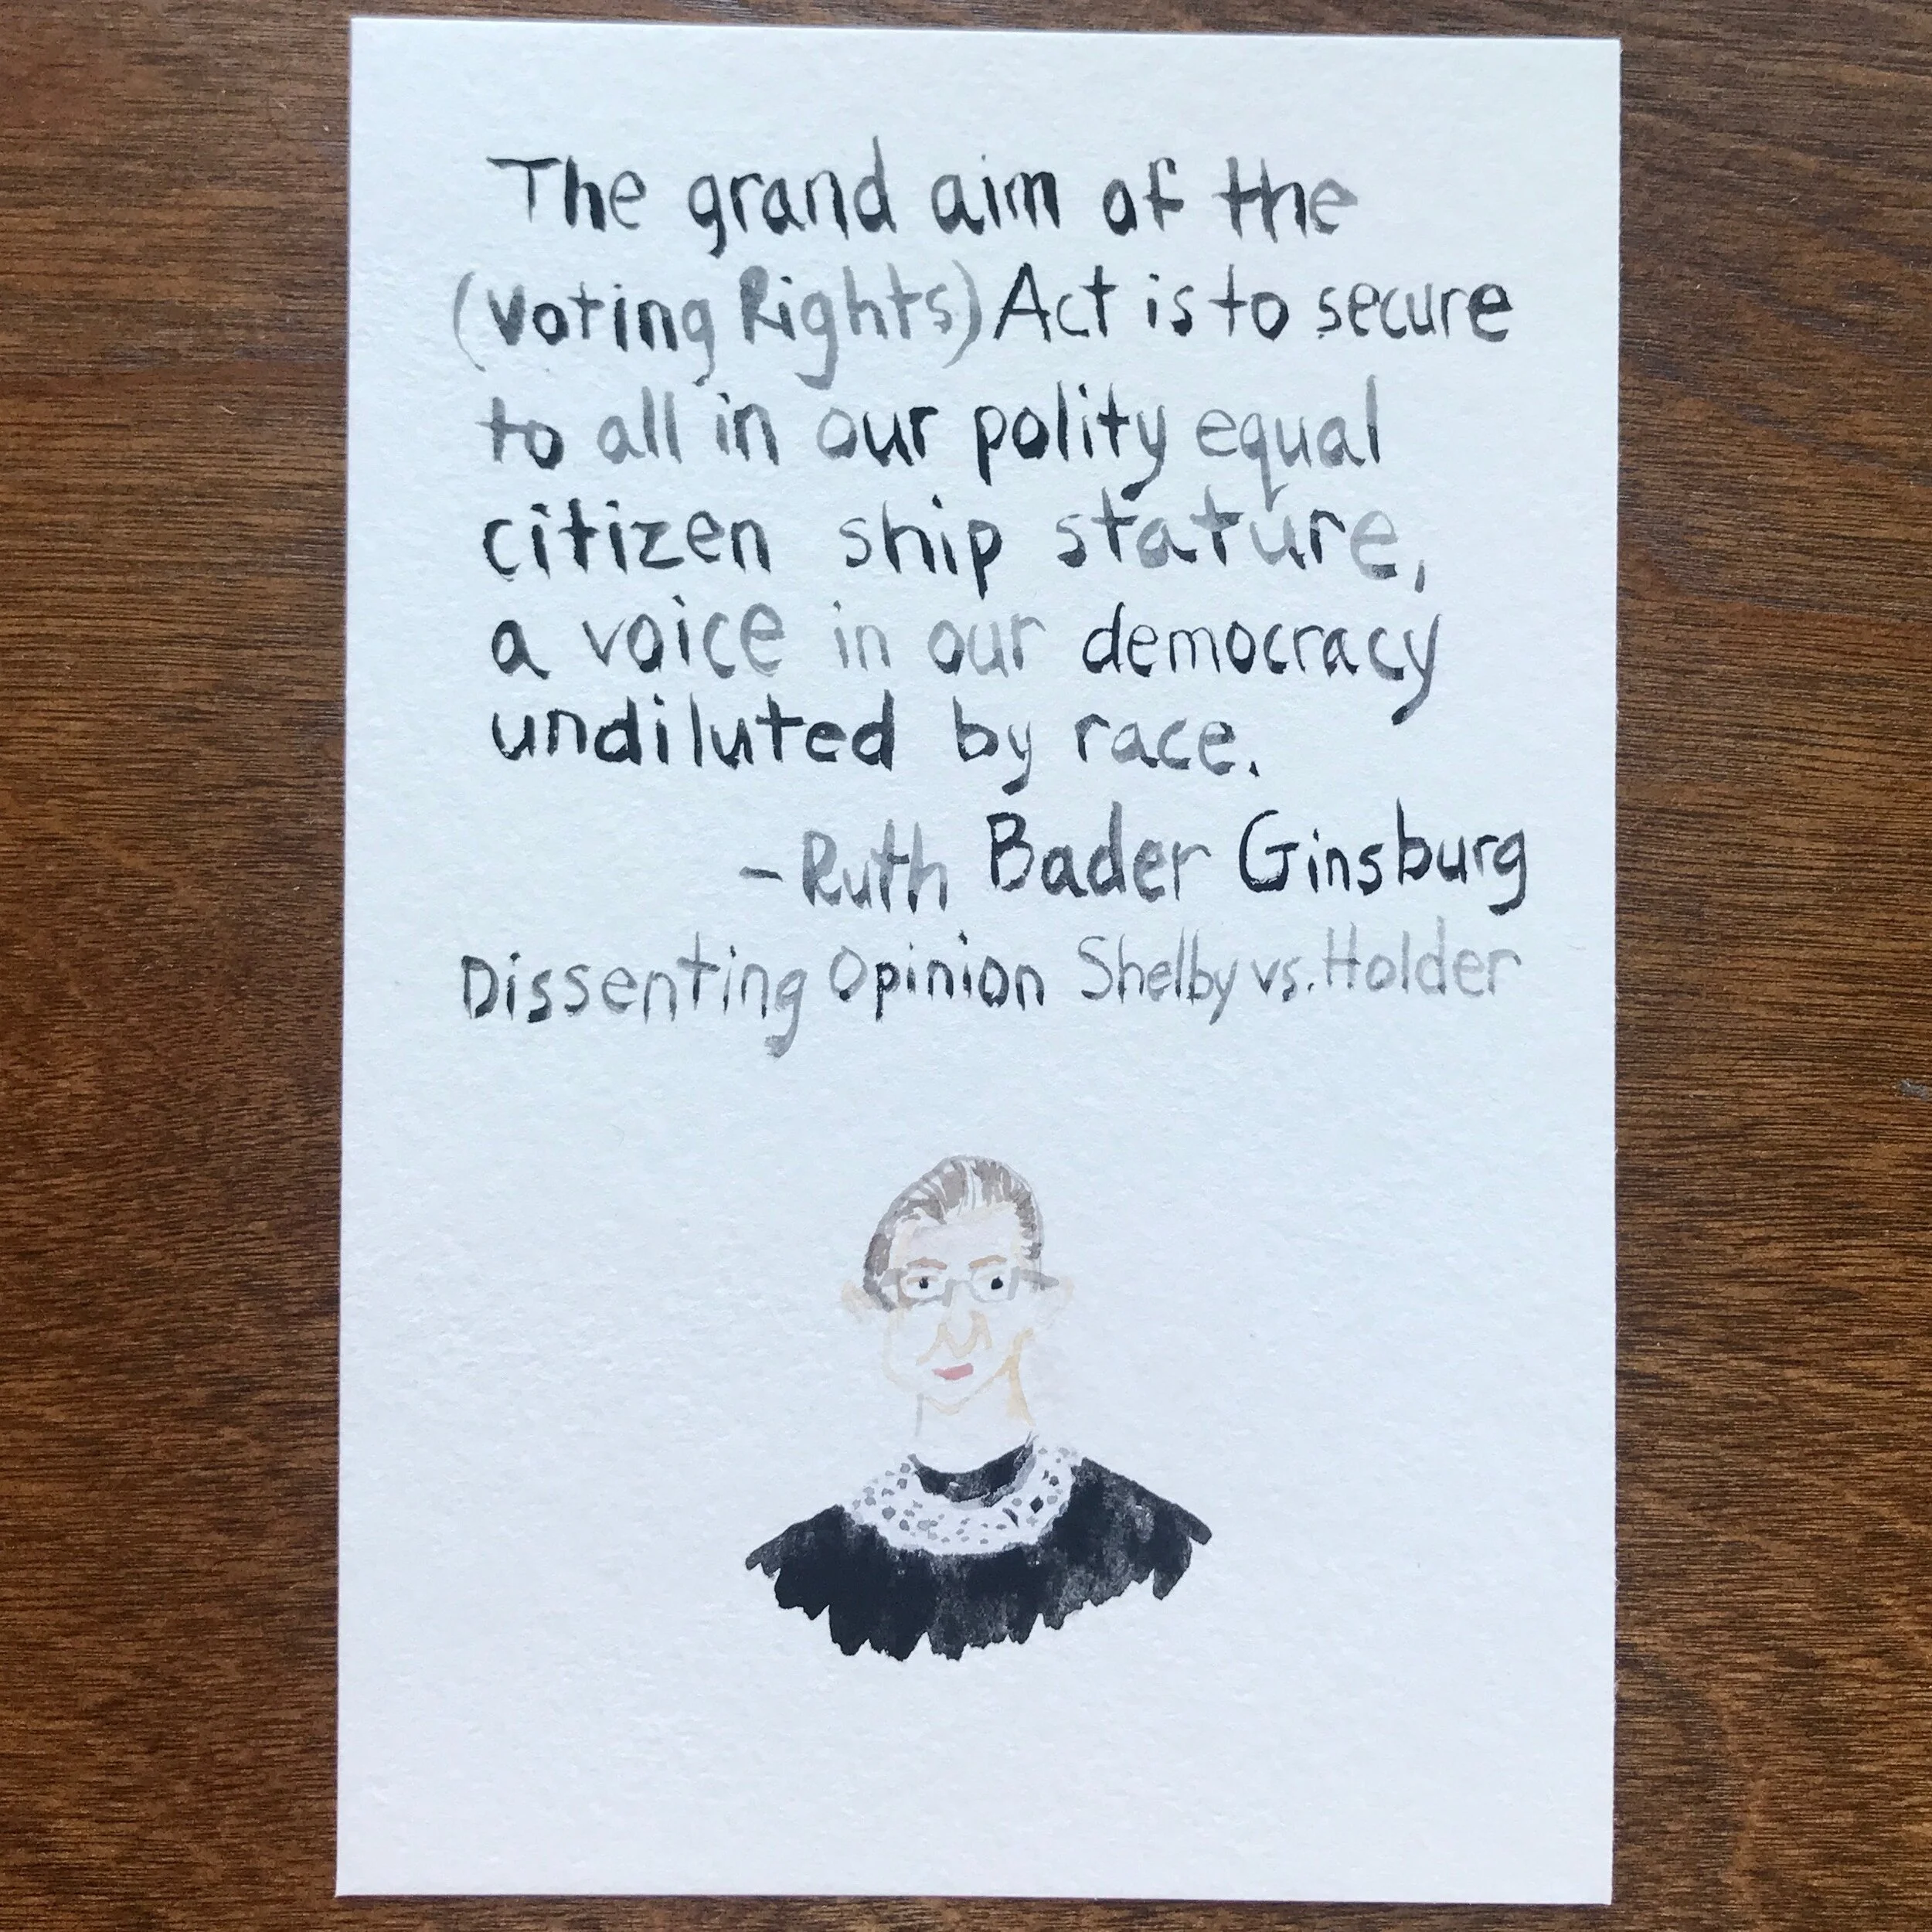 The grand aim of the
(Voting Rights) Act is to secure
to all in our polity equal
citizen ship stature,
a voice in our democracy
undiluted by race.
-Ruth Bader Ginsburg
Dissenting Opinion Shelby vs. Holder